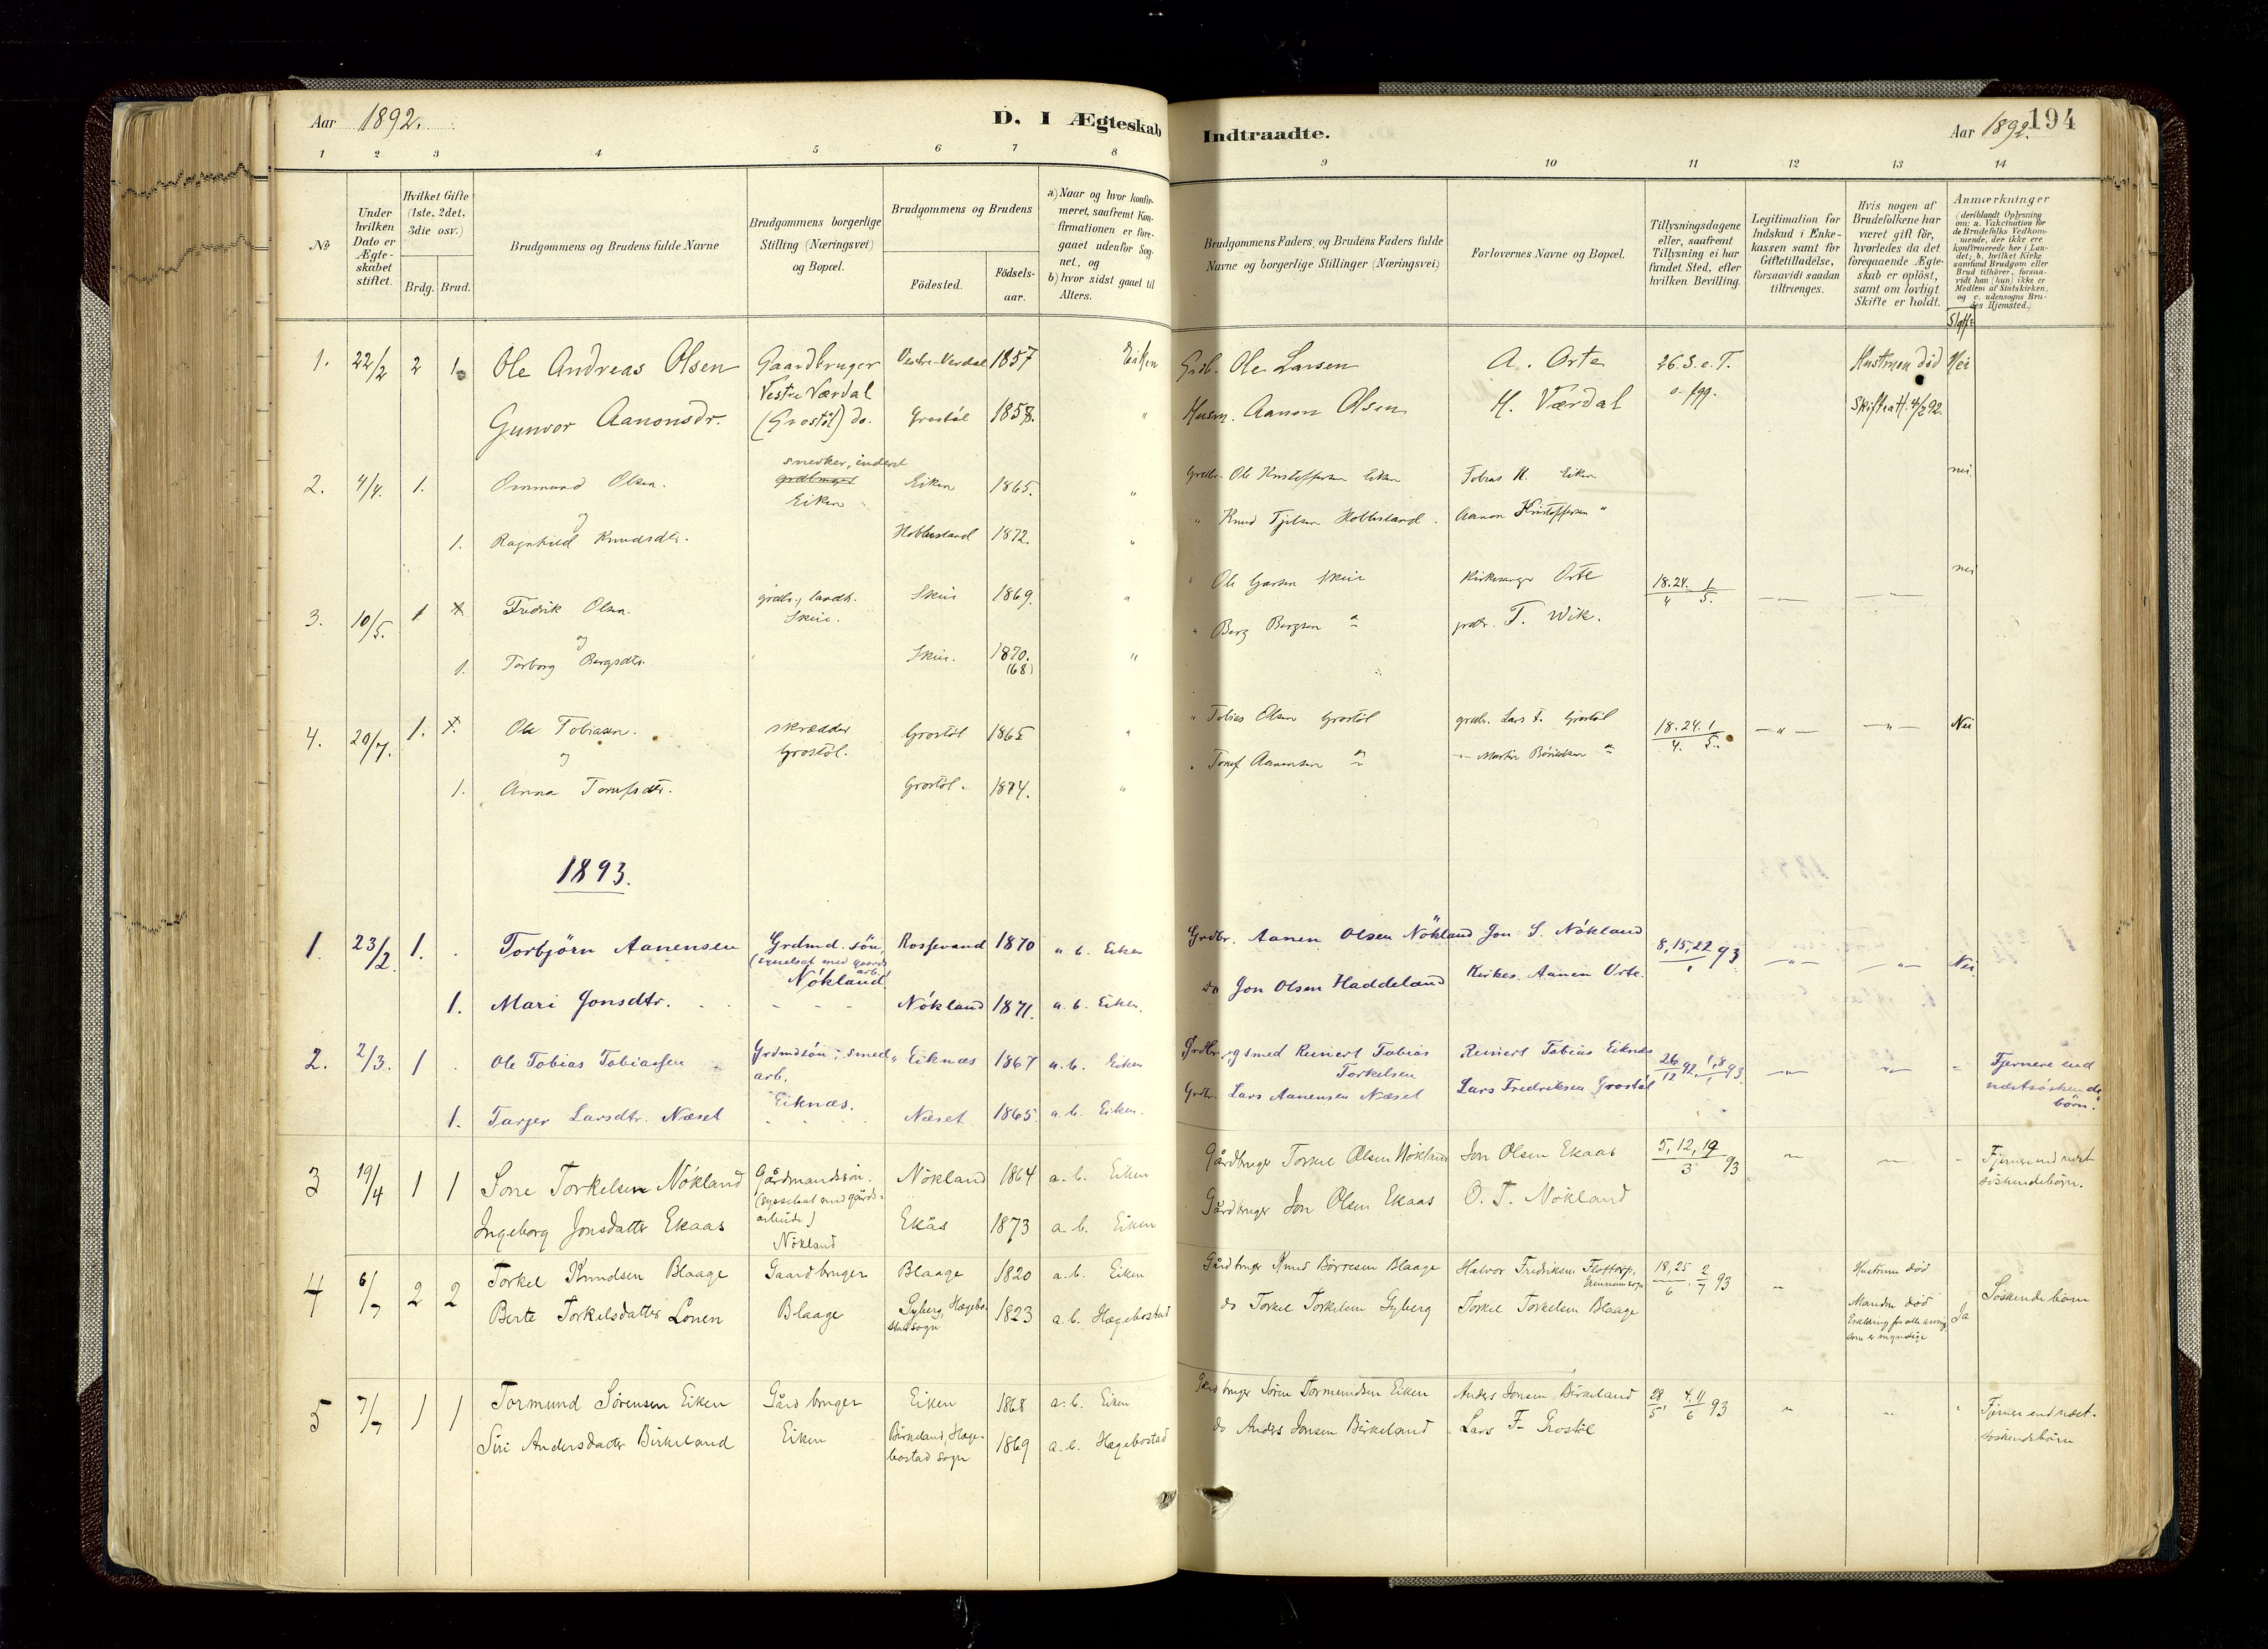 Aar 1892.
D. I Ægteskab
Indtraadte.
Aar 1892.
194
1 2 3 4 5 6 7 8 9 10 11 12 13 14
No
Under hvilken Dato er Ægteskabet stiftet.
Hvilket Gifte (1ste, 2det, 3die osv.)
Brdg. Brud.
Brudgommens og Brudens fulde Navne
Brudgommens borgerlige Stilling (Næringsvei) og Bopæl.
Brudgommens og Brudens
Födested.
Födsels-aar.
a) Naar og hvor konfirmeret, saafremt Konfirmationen er foregaaet udenfor Sognet, og b) hvor sidst gaaet til Alters.
Brudgommens Faders og Brudens Faders fulde Navne og borgerlige Stillinger (Næringsvei)
Forlovernes Navne og Bopæl.
Tillysningsdagene eller, saafremt Tillysning ei har fundet Sted, efter hvilken Bevilling.
Legitimation for Indskud i Enkekassen samt for Giftetilladelse, forsaavidt saadan tiltrænges.
Hvis nogen af Brudefolkene har været gift för, hvorledes da det foregaaende Ægteskab er oplöst, samt om lovligt Skifte er holdt.
Anmærkninger
(deriblandt Oplysning om: a. Vakcination for de Brudefolks Vedkommende, der ikke ere konfirmerede her i Landet; b. hvilket Kirkesamfund Brudgom eller Brud tilhörer, forsaavidt han (hun) ikke er Medlem af Statskirken, og c. udensogns Brudes Hjemsted.)
1. 22/2 2 1 Ole Andreas Olsen Gaardbruger 1857 Eiken Grdb. Ole Larsen A. Orte 26.S.e.T. død Nei
Vestre Værdal
Gunvor Aanonsdr. (Grostøl) do. Grostøl 1858. " Husm. Aanon Olsen H. Værdal o. flgg. 4/2 92.
2. 4/4. 1. Ommund Olsen. snedker, inderst Eiken 1865. " Grdbr. Ole Kristoffersen Eiken Tobias K. Eiken nei
Eiken
og
1. Ragnhild Knudsdtr. 1872. " Knud Aanon Kristoffersen "
3. 10/5. 1 Fredrik Olsen. 1869. " Ole Kirkesanger Orte 18.24. 1 / 4 5. nei
og
1. Torborg Bergsdtr. 1870. (68) " Berg Bergsen grdbr. T. Wik.
4. 20/7. 1. Ole Tobiasen. skrædder Grostöl 1865 " Tobias Olsen Grostöl grdbr. Lars F. Grostöl 18.24. 1 / 4. 5. Nei
og Grostöl.
1. Anna Grostöl. 1874. " Aanensen
1893.
1. 23/2. 1. Torbjörn Aanensen Grdmd. sön Rossevand 1870 a b. Eiken Grdbr. Aanen Olsen Nökland Jon S. Nökland 8, 15, 22 / 1 93 Nei
(sysselsat med gaardsarb.)
Nökland
1. Mari Jonsdtr. Nökland 1871. a. b. Eiken. do Jon Olsen Haddeland Kirkes. Aanen Orte.
2. 2/3. 1 Ole Tobias Tobiassen Grdmdsön, smed- Eiknæs 1867 a. b. Eiken Grdbr. og smed Reinert Tobias Torkelsen Reinert Tobias Eiknæs 26/12 92. 1, 8 / 1 93. Fjernere end
arb. næstsöskendebörn.
Eiknæs.
1. Tarjer Larsdtr. Næset Næset 1865. a. b. Eiken. Grdbr. Lars Aanensen Næset Lars Fredriksen Grostøl
3 19/4 1 1 Sone Torkelsen Nökland Gårdmandssön. Nökland 1864 a. b. Eiken Gårdbruger Torkel Olsen Nökland Jon Olsen Ekaas 5, 12, 19 / 3 93 Fjernere end næst
(sysselsat med gårds-
arbeide) söskendebörn.
Ingeborg Jonsdatter Ekaas Ekås 1873 a. b. Eiken Gårdbruger Jon Olsen Ekaas O. T. Nökland
Nökland
4 6/7 2 2 Torkel Knudsen Blaage Gaardbruger Blaage 1820 a. b. Eiken Gårdbruger Knud Börresen Blaage Halvor Fredriksen 18, 25 / 6 . 2/7 93 Hustruen död
Söskendebörn
Berte Torkelsdatter Lonen Blaage Gyberg, Hægebostad sogn 1823 a. b. Hægebostad do Torkel Torkelsen Gyberg Torkel Torkelsen Blaage Manden död Ja
som er myndige
5 7/7 1 1 Tormund Sörensen Eiken Gårdbruger Eiken 1868 a. b. Eiken Gårdbruger Sören Tormundsen Eiken Anders Jonsen Birkeland 28/5. 4, 11 / 6 93 Fjernere end næst-
söskendebörn
Siri Andersdatter Birkeland Eiken Birkeland, Hægebostad sogn 1869 a. b. Hægebostad do Anders Jonsen Birkeland Lars F. Grostöl